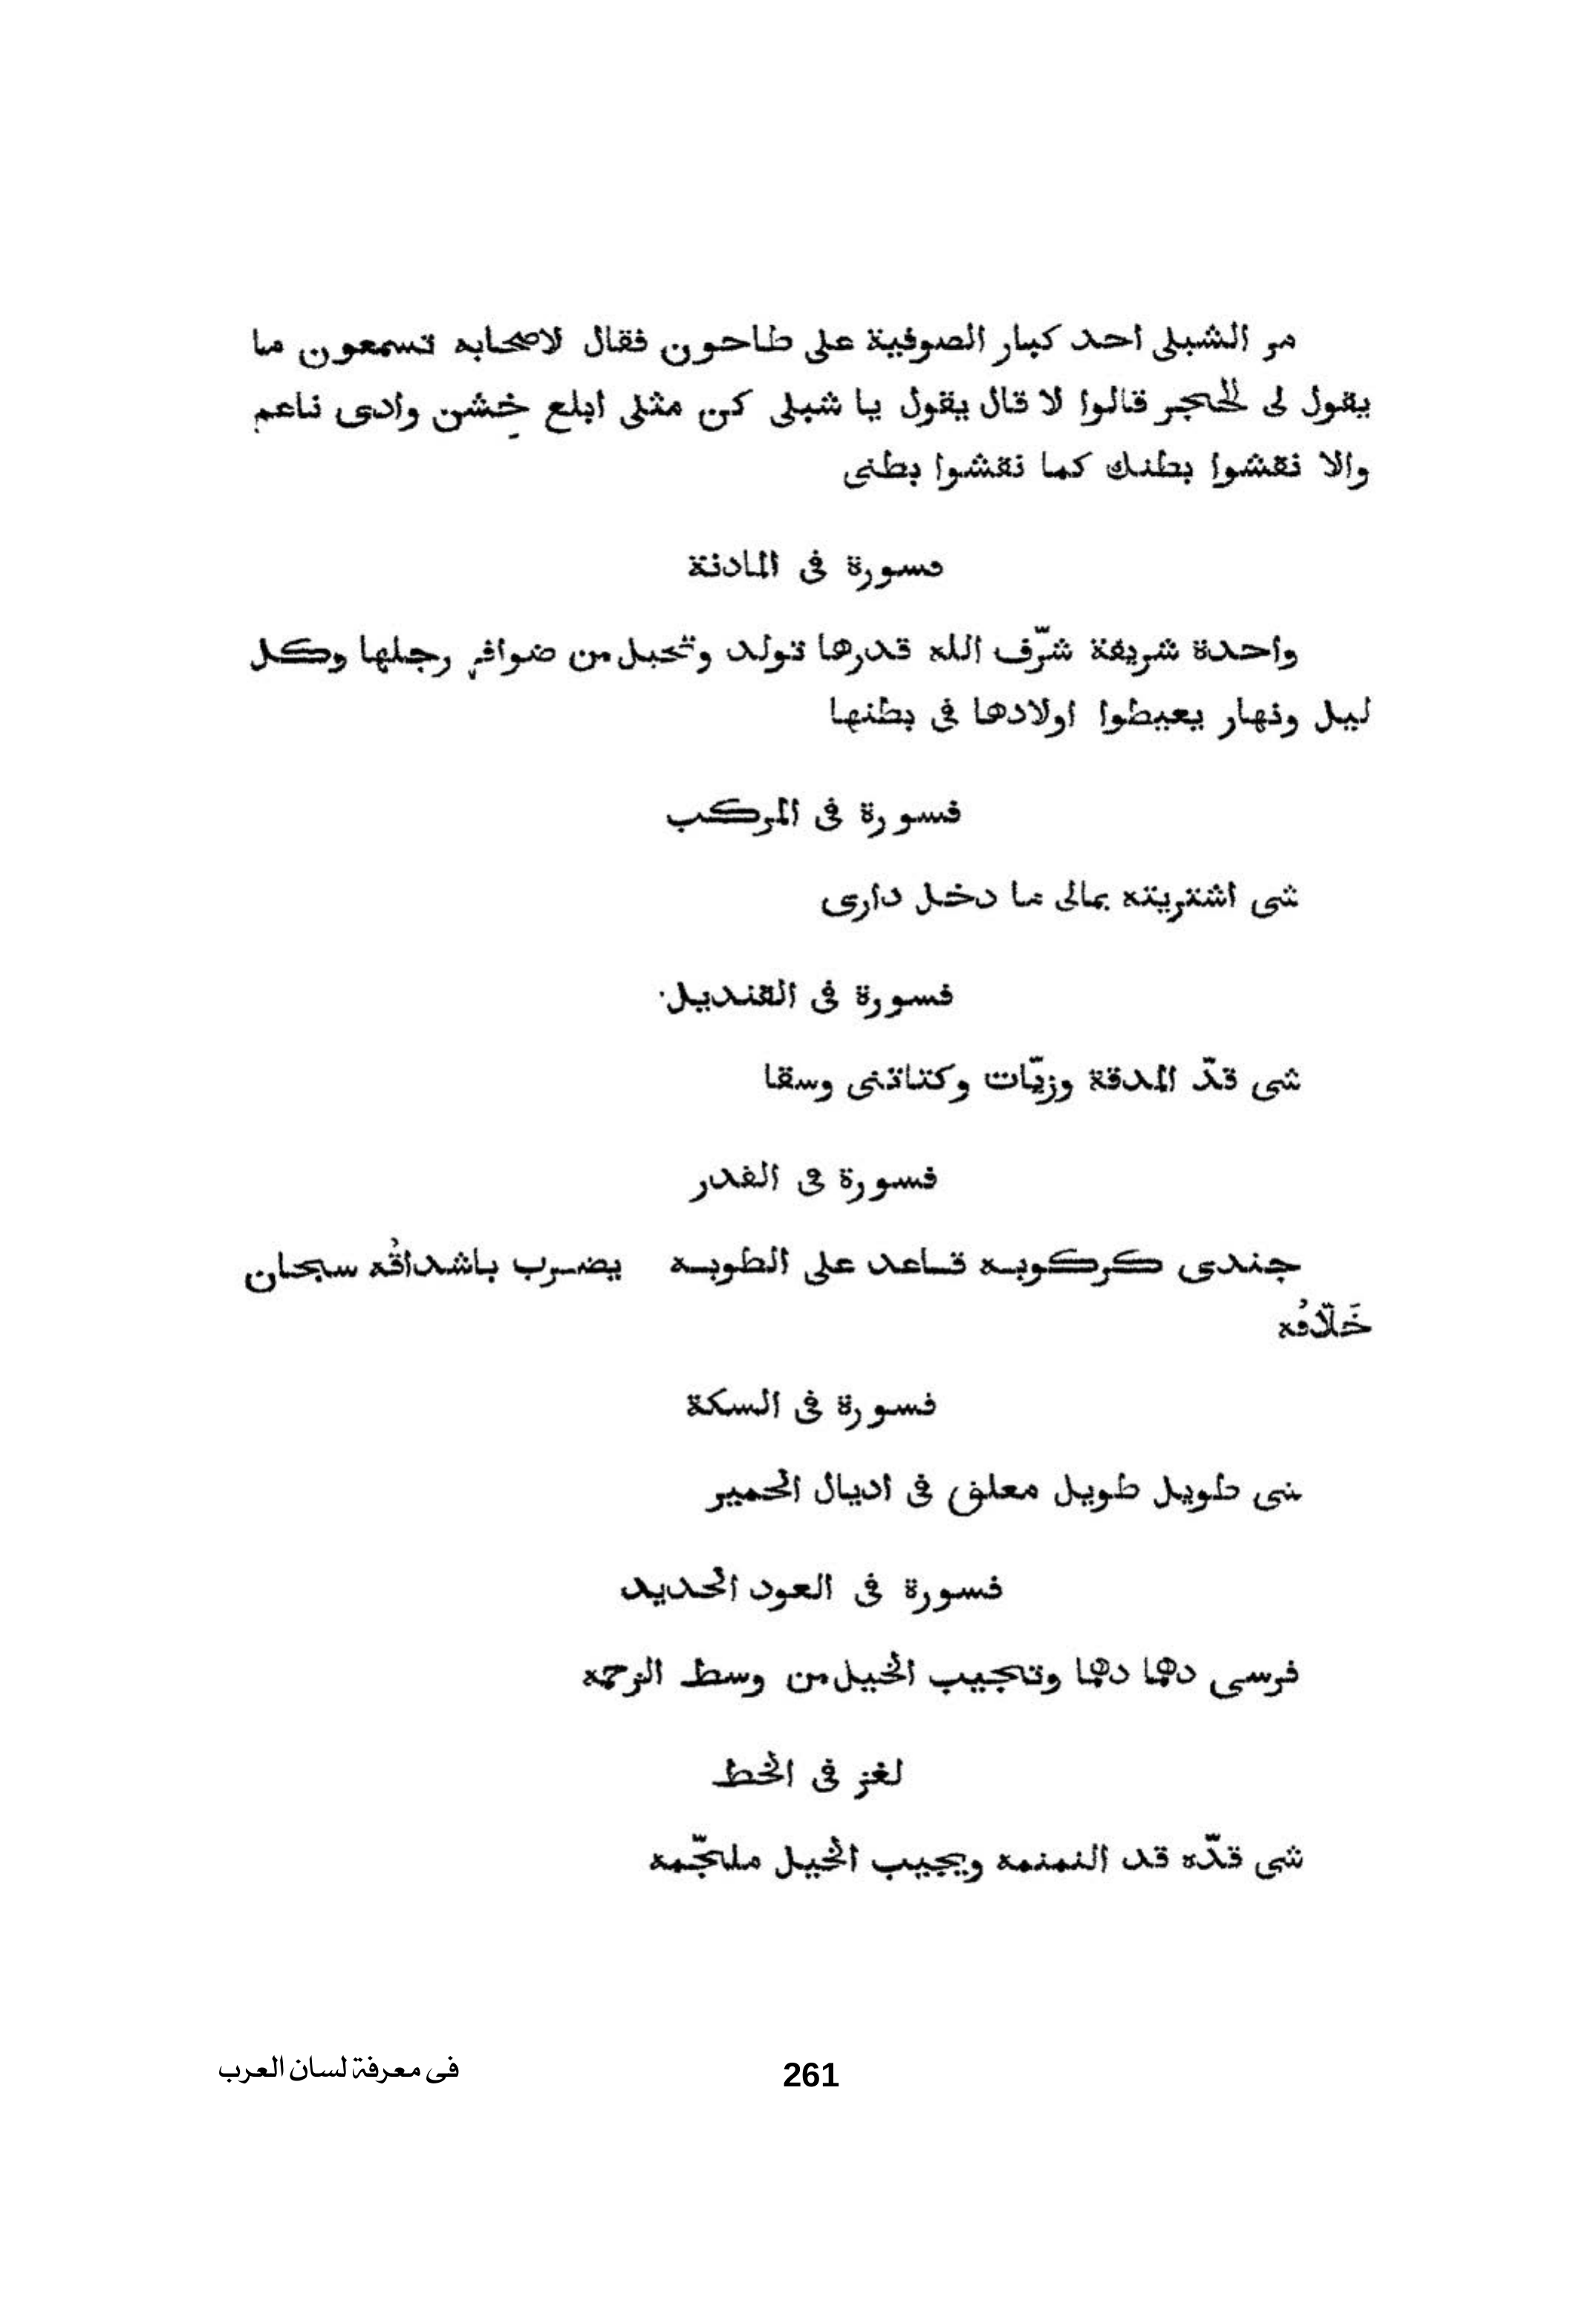 مر الشبلى احد كبار الصوفية على طاحون فقال لاصحابه تسمعون ما
يقول لى الحجر قالوا لا قال يقول يا شبلى كن مثلى ابلع خِشن وادى ناعم
والا نقشوا بطنك كما نقشوا بطنى
فسورة فى المادنة
واحدة شريفة شرّف الله قدرها تولد وتحبل من ضوافر رجلها وكل
ليل ونهار يعيطوا اولادها فى بطنها
فسورة فى المركب
شى اشتريته بمالى ما دخل دارى
فسورة فى القنديل
شى قدّ المدقة وزيّات وكتاتنى وسقا
فسورة فى الفدر
جندى كركوبه قاعد على الطوبه يضرب باشداقُه سبحان
خَلّاقُه
فسورة فى السكة
شى طويل طويل معلق فى اديال الحمير
فسورة فى العود الحديد
فرسى دهما دهما وتجيب الخيل من وسط الزحمه
لغز فى الخط
شى قدّه قد النمنمه ويجيب الخيل ملجّمه
فى معرفة لسان العرب
261